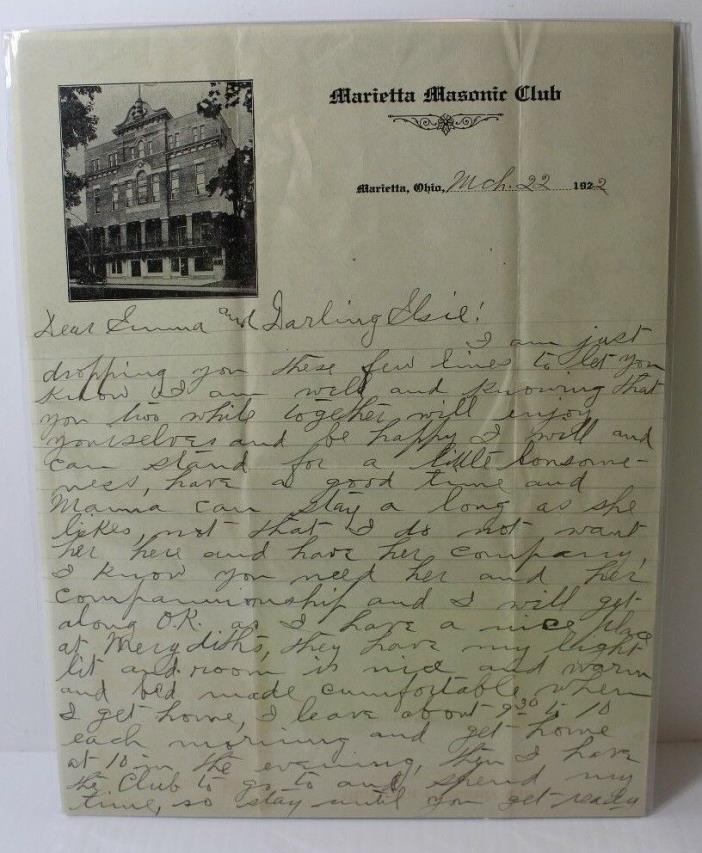 Marietta Masonic Club
Marietta, Ohio, Mch. 22 1922
Dear Emma and Darling Elsie!
I am just
dropping you these few lines to let you
know I am well and knowing that
you two while together will enjoy
yourselves and be happy I will and
can stand for a little lonsome-
ness, have a good time and
Mama can stay a long as she
likes, not that I do not want
her here and have her company,
I know you need her and her
companionship and I will get
along O.K. as I have a nice place
at Merydiths, they have my light
lit and room is nice and warm
and bed made cumfortable when
I get home, I leave about 9 30 to 10
each morning and get home
at 10 in the evening, then I have
the Club to go to and spend my
time, so stay until you get ready